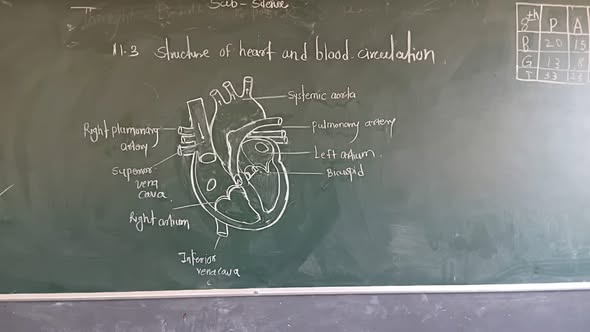 Sub - Science
11.3 Structure of heart and blood circulation.
8th P A
B 20 15
G 13 8
T 33 23
Systemic aorta
Right plumonary
artory
pulmonary artery
Left artium.
Superior
vena
cava
Bicuspid
Right artium
Inferior
vena cava